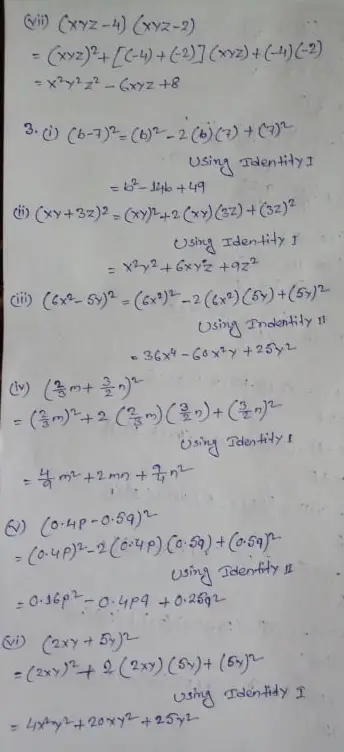 (vii) (xyz-4) (xyz-2)
= (xyz)²+ [(-4) + (-2)] (xyz) + (-4) (-2)
= x²y²z² - 6xyz +8
3. (i) (b-7)² = (b)² - 2(b)(7) + (7)²
Using Identity I
= b² - 14b + 49
(ii) (xy+3z)² = (xy)² + 2(xy)(3z) + (3z)²
Using Identity I
= x²y² + 6xyz + 9z²
(iii) (6x² - 5y)² = (6x²)² - 2(6x²)(5y) + (5y)²
Using Indentity II
= 36x⁴ - 60x²y + 25y²
(iv) (2/3 m + 3/2 n)²
= (2/3 m)² + 2 (2/3 m) (3/2 n) + (3/2 n)²
Using Identity I
= 4/9 m² + 2mn + 9/4 n²
(v) (0.4p - 0.5q)²
= (0.4p)² - 2(0.4p) (0.5q) + (0.5q)²
Using Identity II
= 0.16p² - 0.4pq + 0.25q²
(vi) (2xy + 5y)²
= (2xy)² + 2 (2xy) (5y) + (5y)²
Using Identity I
= 4x²y² + 20xy² + 25y²